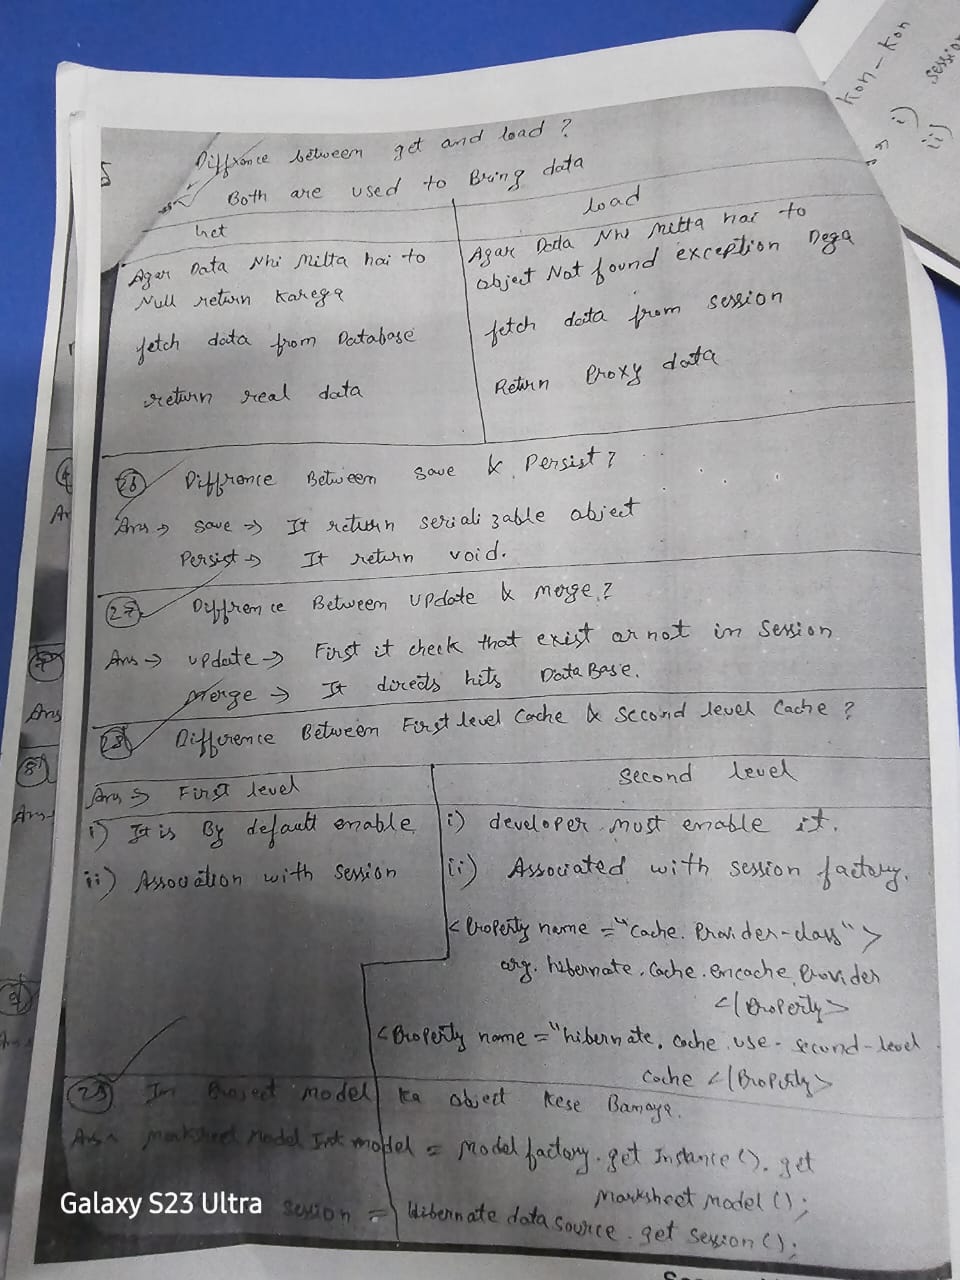 Diffrence between get and load ?
Both are used to Bring data
Get
load
Agar Data Nhi Milta hai to
Null return Karega
fetch data from Database
return real data
Agar Data Nhi milta hai to
object Not found exception Dega
fetch data from session
Return Proxy data
26 Diffrence Between save & Persist ?
Ans → save → It return serializable object
Persist → It return void.
27 Diffrence Between update & merge ?
Ans → update → First it check that exist or not in Session
Merge → It directs hits DataBase.
28 Difference Between First level Cache & second level Cache ?
Ans → First level
second level
i) It is By default enable
ii) Association with session
i) developer must enable it.
ii) Associated with session factory.
<Property name ="Cache. Provider-class">
org. hibernate. Cache. encache. Provider
</Property>
<Property name ="hibernate. cache. use- second-level
Cache </Property>
In Project model ka object Kese Banaya.
Ans marksheet Model Int model = Model factory. get Instance (). get
Marksheet model ();
session = Hibernate data Source. get session ();
Galaxy S23 Ultra
Kon-Kon
i) session
ii)
Ans
Ans